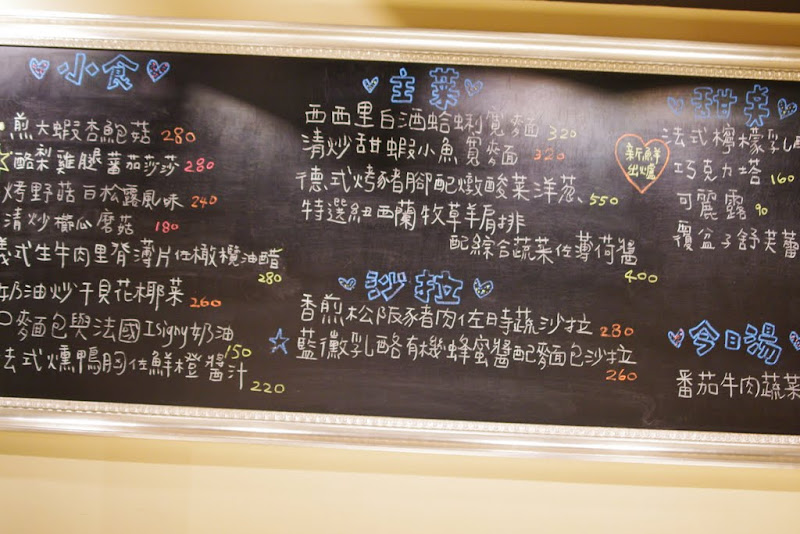 小食
煎大蝦杏鮑菇 280
酪梨雞腿蕃茄莎莎 280
烤野菇白松露風味 240
清炒櫛瓜蘑菇 180
義式生牛肉里脊薄片佐橄欖油醋
280
奶油炒干貝花椰菜 260
麵包與法國Isigny奶油
150
法式燻鴨胸佐鮮橙醬汁
220
主菜
西西里白酒蛤蜊寬麵 320
清炒甜蝦小魚寬麵 320
德式烤豬腳配燉酸菜洋蔥、550
特選紐西蘭牧草羊肩排
配綜合蔬菜佐薄荷醬
400
沙拉
香煎松阪豬肉佐時蔬沙拉 280
藍黴乳酪有機蜂蜜醬配麵包沙拉
260
甜菜
新鮮
出爐
法式檸檬乳酪
巧克力塔 160
可麗露 90
覆盆子舒芙蕾
今日湯
番茄牛肉蔬菜